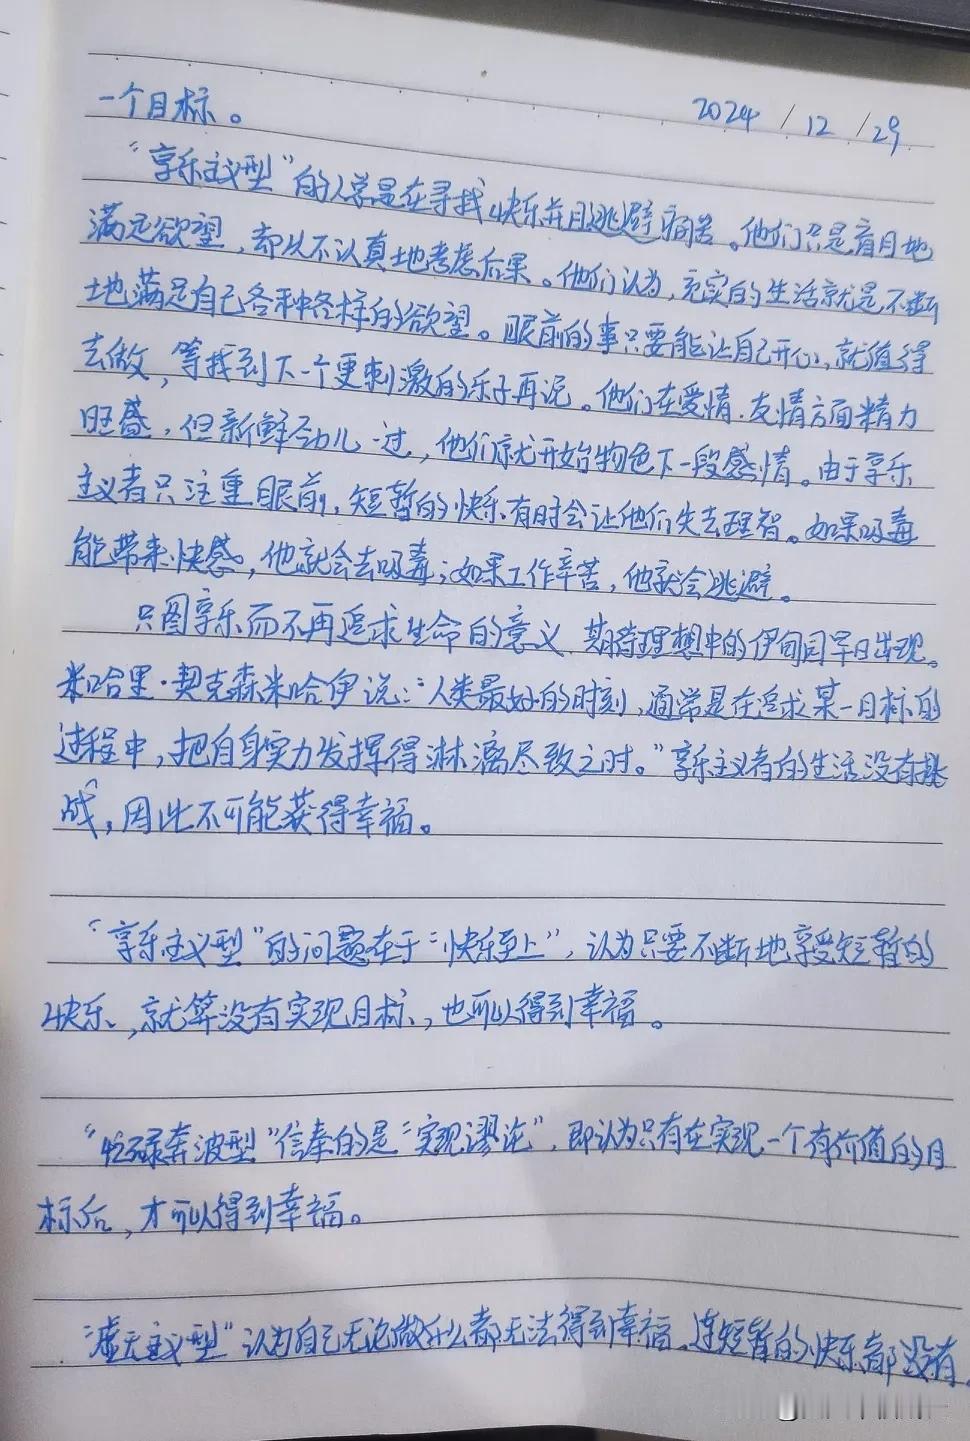 一个目标。 2024/12/29
“享乐主义型”的人总是在寻找快乐并且逃避痛苦。他们只是盲目地
满足欲望，却从不认真地考虑后果。他们认为，充实的生活就是不断
地满足自己各种各样的欲望。眼前的事只要能让自己开心，就值得
去做，等找到下一个更刺激的乐子再说。他们在爱情、友情方面精力
旺盛，但新鲜劲儿一过，他们就开始物色下一段感情。由于享乐
主义者只注重眼前，短暂的快乐有时会让他们失去理智。如果吸毒
能带来快感，他就会去吸毒；如果工作辛苦，他就会逃避。
只图享乐而不再追求生命的意义，期待理想中的伊甸园早日出现。
米哈里·契克森米哈伊说：“人类最好的时刻，通常是在追求某一目标的
过程中，把自身实力发挥得淋漓尽致之时。”享乐主义者的生活没有挑
战，因此不可能获得幸福。
“享乐主义型”的问题在于“快乐至上”，认为只要不断地享受短暂的
快乐，就算没有实现目标，也可以得到幸福。
“忙碌奔波型”信奉的是“实现谬论”，即认为只有在实现一个有价值的目
标后，才可以得到幸福。
“虚无主义型”认为自己无论做什么都无法得到幸福，连短暂的快乐都没有。